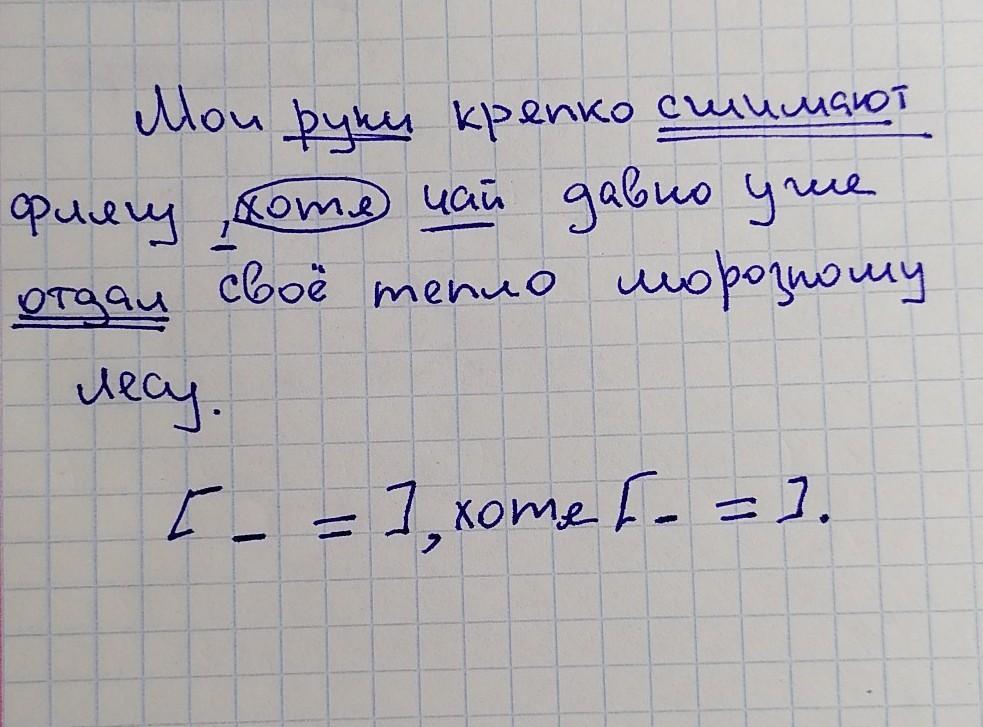 Мои руки крепко сжимают
флягу, хотя чай давно уже
отдал своё тепло морозному
лесу.
[ – = ], хотя [ – = ].